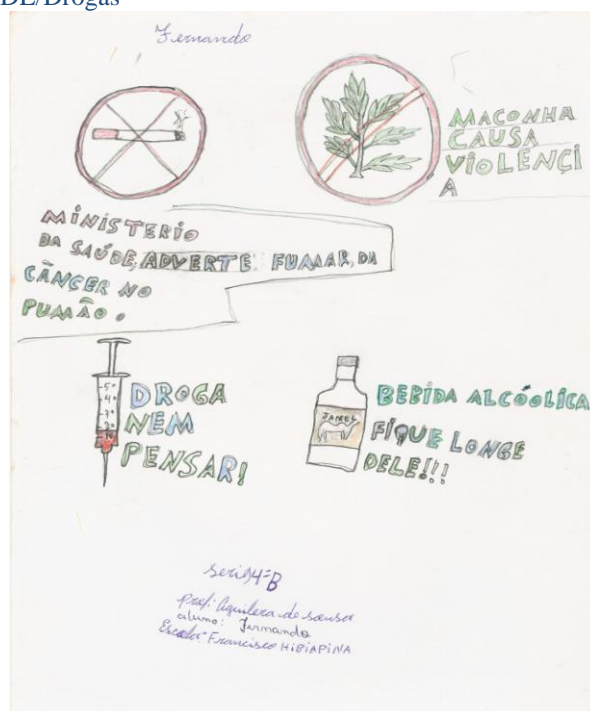 DE/Drogas
Fernando
MACONHA
CAUSA
VIOLÊNCI
A
MINISTERIO
DA SAÚDE, ADVERTE: FUMAR, DA
CÂNCER NO
PUMÃO.
-5º
-4º
-3º
-2º
DROGA
NEM
PENSAR!
JAMEL
BEBIDA ALCÓOLICA
FIQUE LONGE
DELE!!!
serie 4ª B
prof: Aguilera de sousa
aluno: Fernando
Escola: Francisco HIBIAPINA